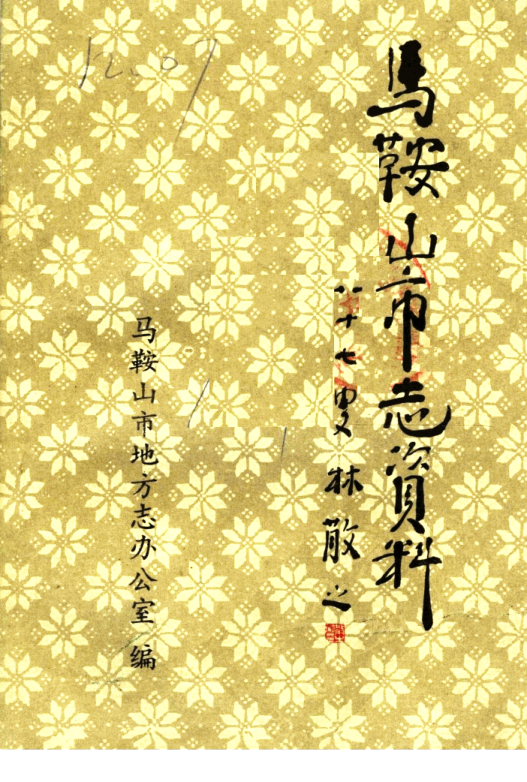 馬鞍山市志資料
八十七叟林散之
马鞍山市地方志办公室 编